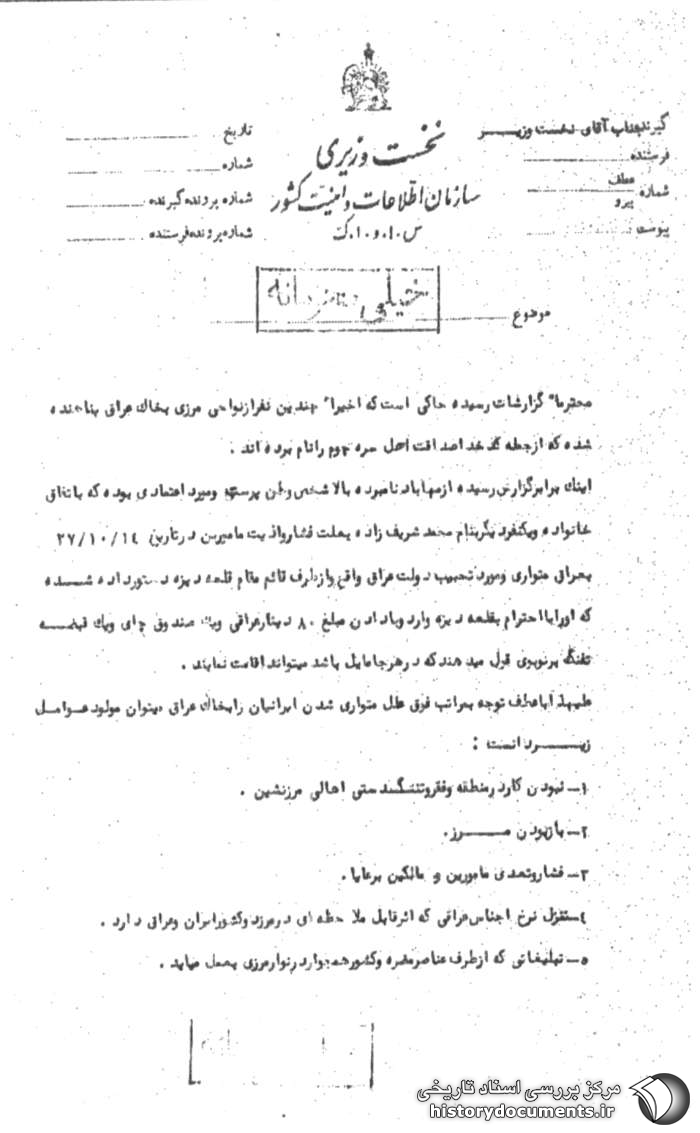 گیرنده جناب آقای نخست وزیر
فرستنده
عطف
شماره
پیرو
پیوست
نخست وزیری
سازمان اطلاعات و امنیت کشور
س.ا.و.ا.ک
تاریخ
شماره
شماره پرونده گیرنده
شماره پرونده فرستنده
خیلی محرمانه
موضوع
محترما" گزارشات رسیده حاکی است که اخیرا" چندین نفر از نواحی مرزی بخاك عراق پناهنده
شده که از جمله کدخدا صداقت اهل سره چوم را نام برده اند .
اینك برابر گزارش رسیده از مهاباد نامبرده بالا شخص وطن پرست و مورد اعتمادی بوده که باتفاق
خانواده و یکنفر دیگر بنام محمد شریف زاده بعلت فشار واذیت مامورین در تاریخ ۲۷/۱۰/۱۴
بعراق متواری و مورد تحبیب دولت عراق واقع و از طرف قائم مقام قلعه دیزه دستور داده شده
که او را با احترام بقلعه دیزه وارد و با دادن مبلغ ۸۰ دینار عراقی ویك صندوق چای ویك قبضه
تفنگ برنوی قول میدهند که در هر جا مایل باشد میتواند اقامت نمایند .
علیهذا با عطف توجه بمراتب فوق علل متواری شدن ایرانیان را بخاك عراق میتوان مولود عوامل
زیر دانست :
۱- نبودن کار در منطقه و فقر و تنگدستی اهالی مرزنشین .
۲- باز بودن مرز .
۳- فشار و تعدی مامورین و مالکین برعایا .
٤- تنزل نرخ اجناس عراقی که اثر قابل ملاحظه ای در مرز دو کشور ایران و عراق دارد .
۵- تبلیغاتی که از طرف عناصر مضره و کشور همجوار در نوار مرزی بعمل میاید .
مرکز بررسی اسناد تاریخی
historydocuments.ir